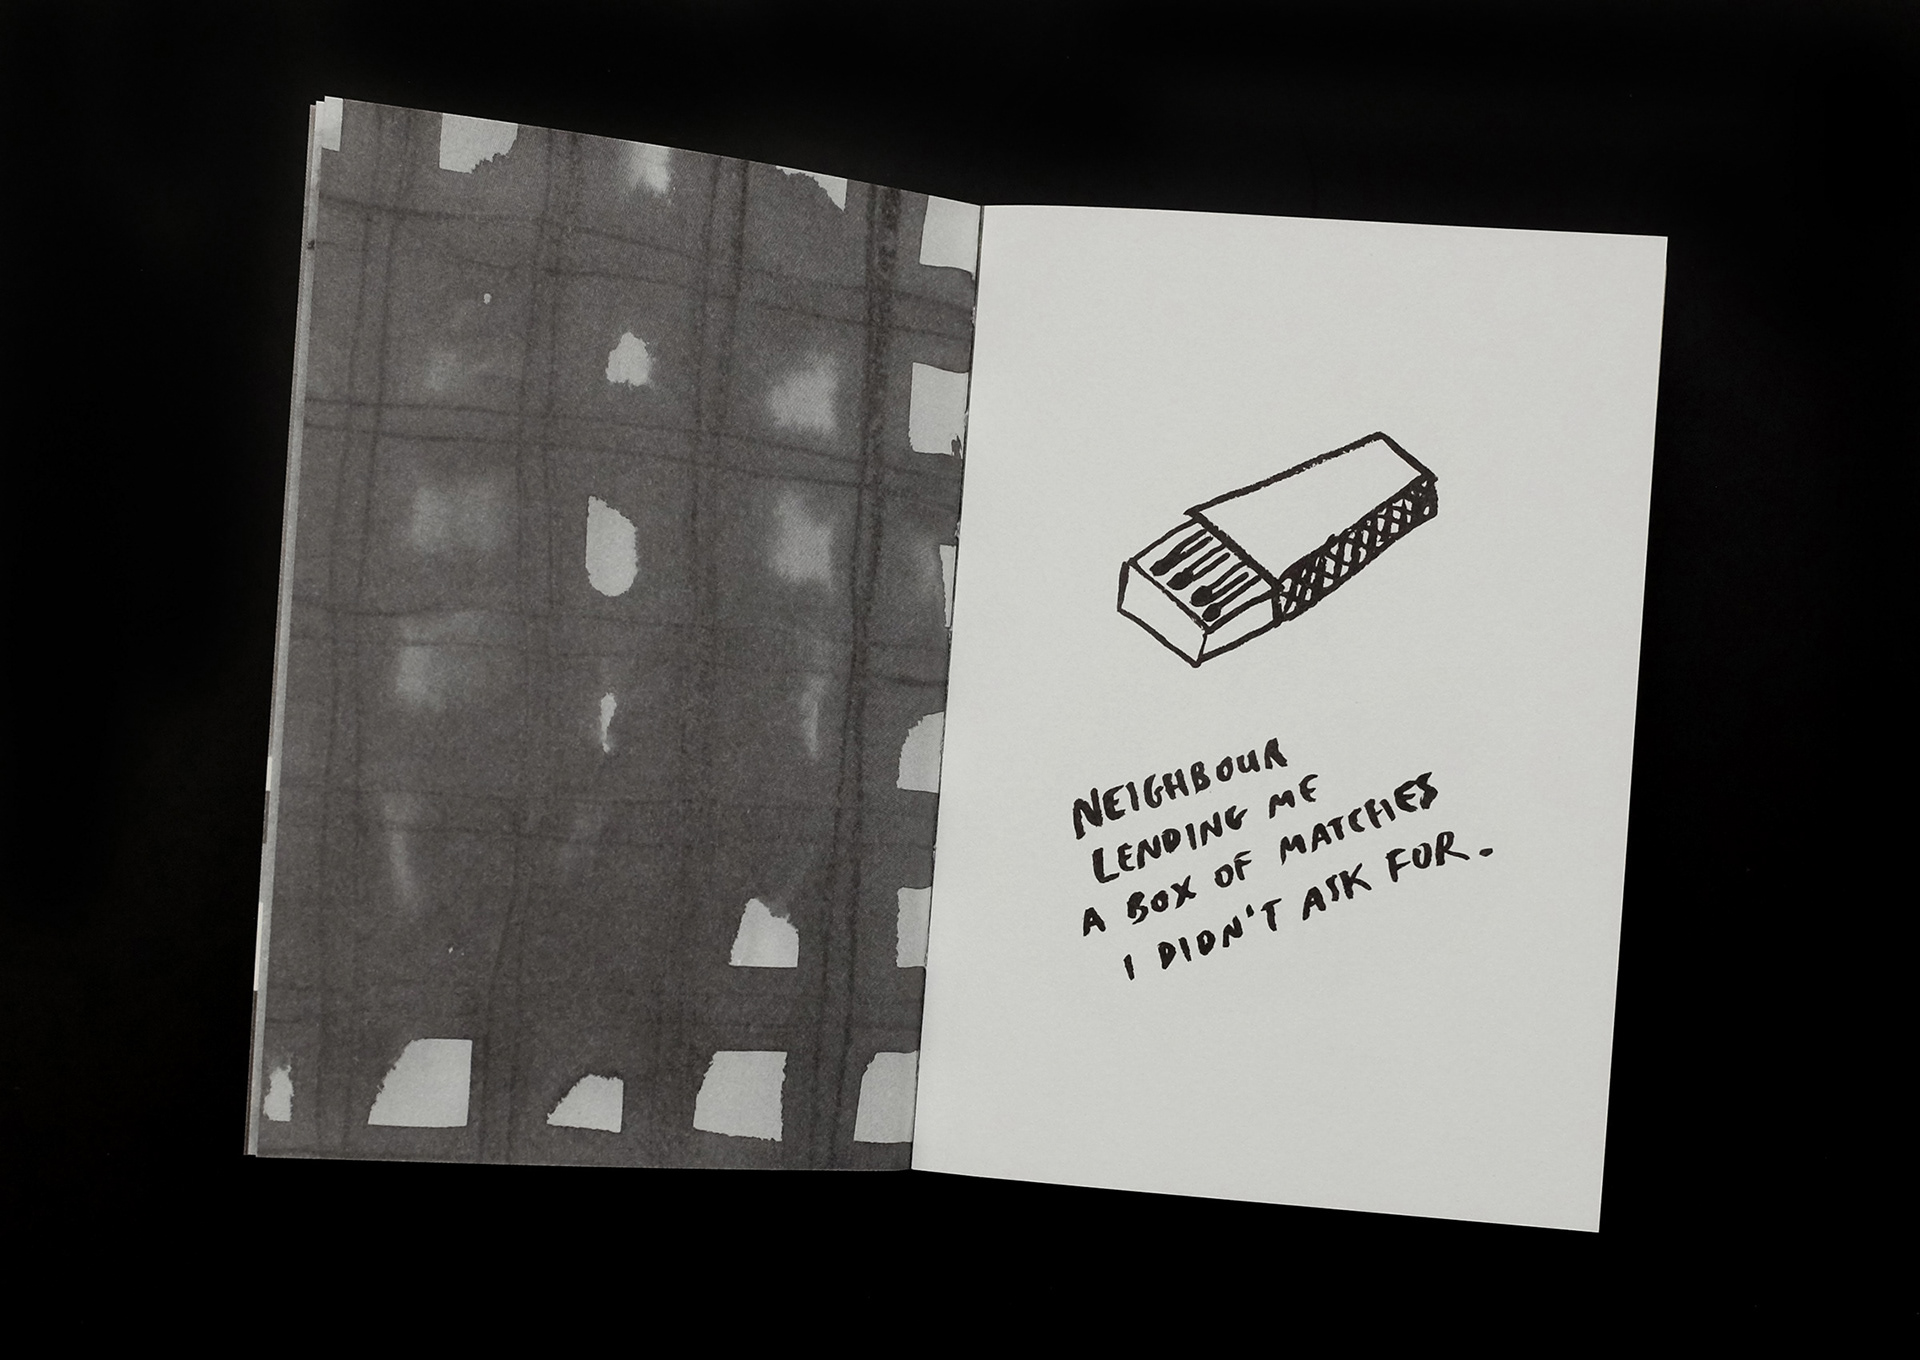 NEIGHBOUR
LENDING ME
A BOX OF MATCHES
I DIDN'T ASK FOR.